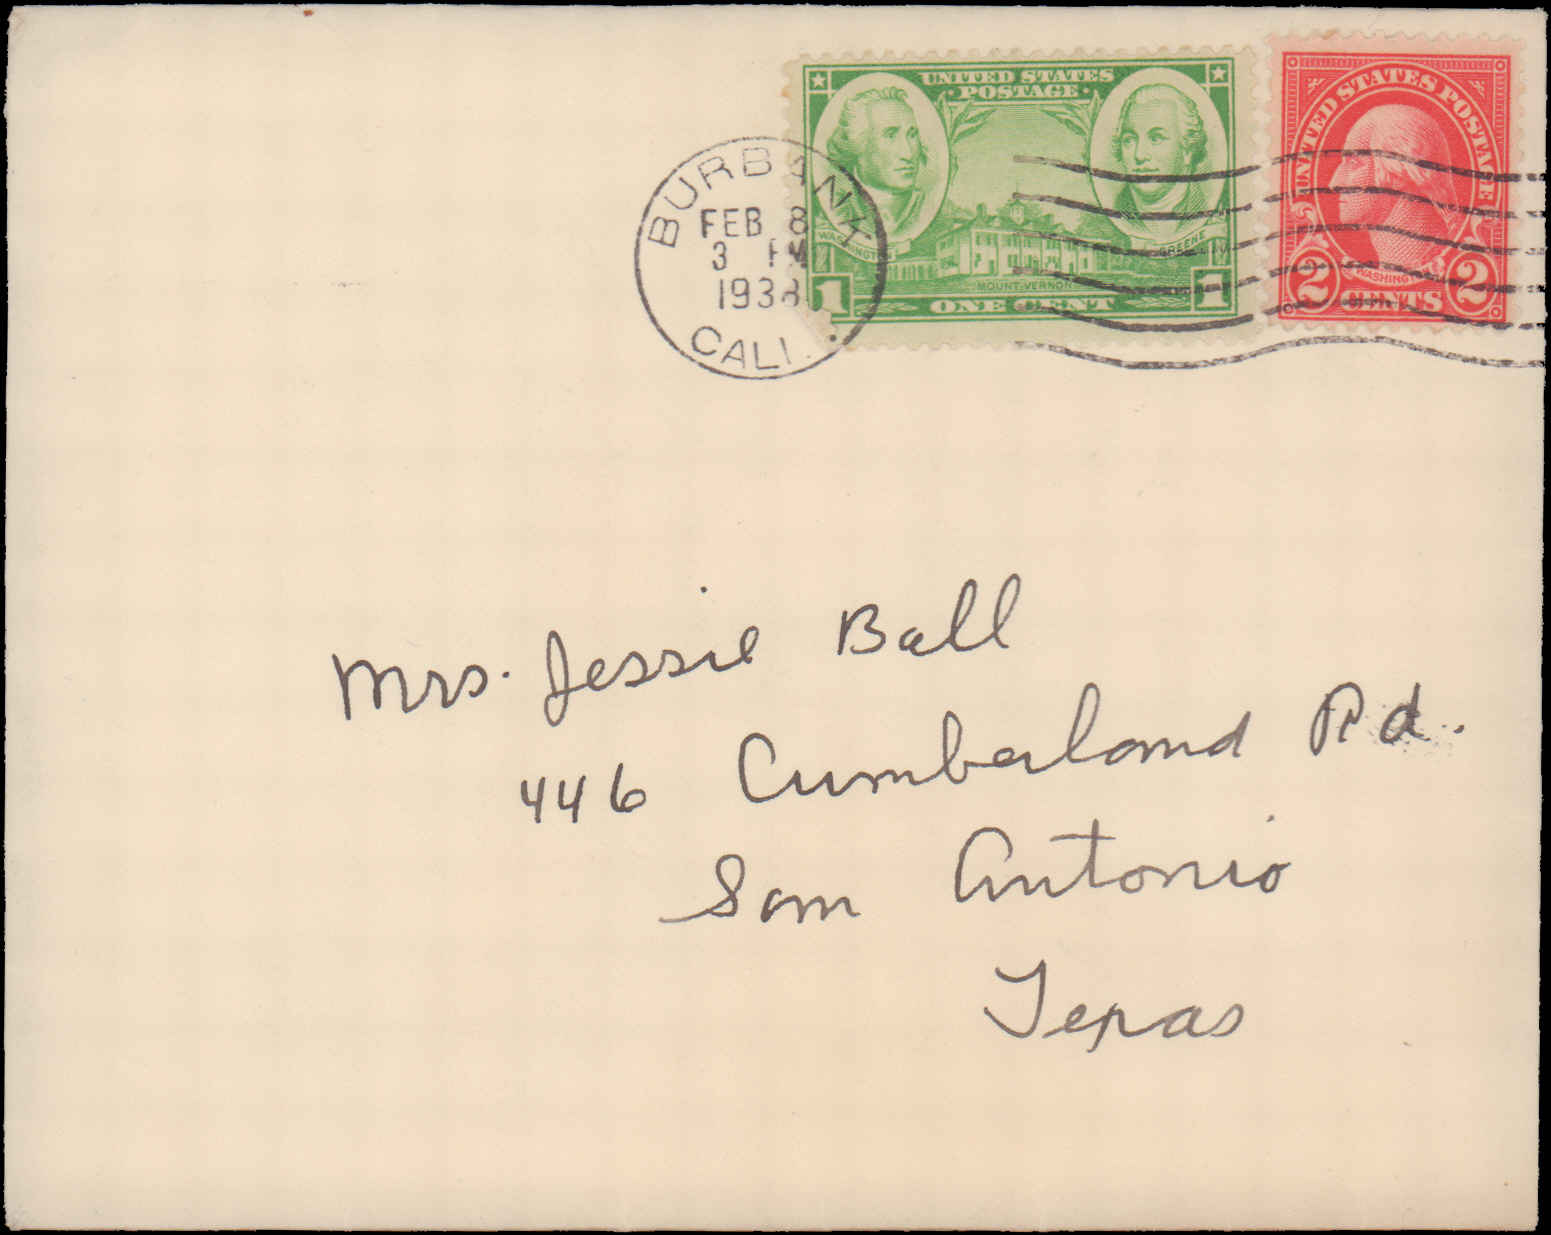 UNITED STATES
POSTAGE
WASHINGTON
GREENE
MOUNT VERNON
1 ONE CENT 1
UNITED STATES POSTAGE
WASHINGTON
2 CENTS 2
BURBANK
FEB 8
3 PM
1938
CALIF.
Mrs. Jessie Ball
446 Cumberland Rd.
San Antonio
Texas